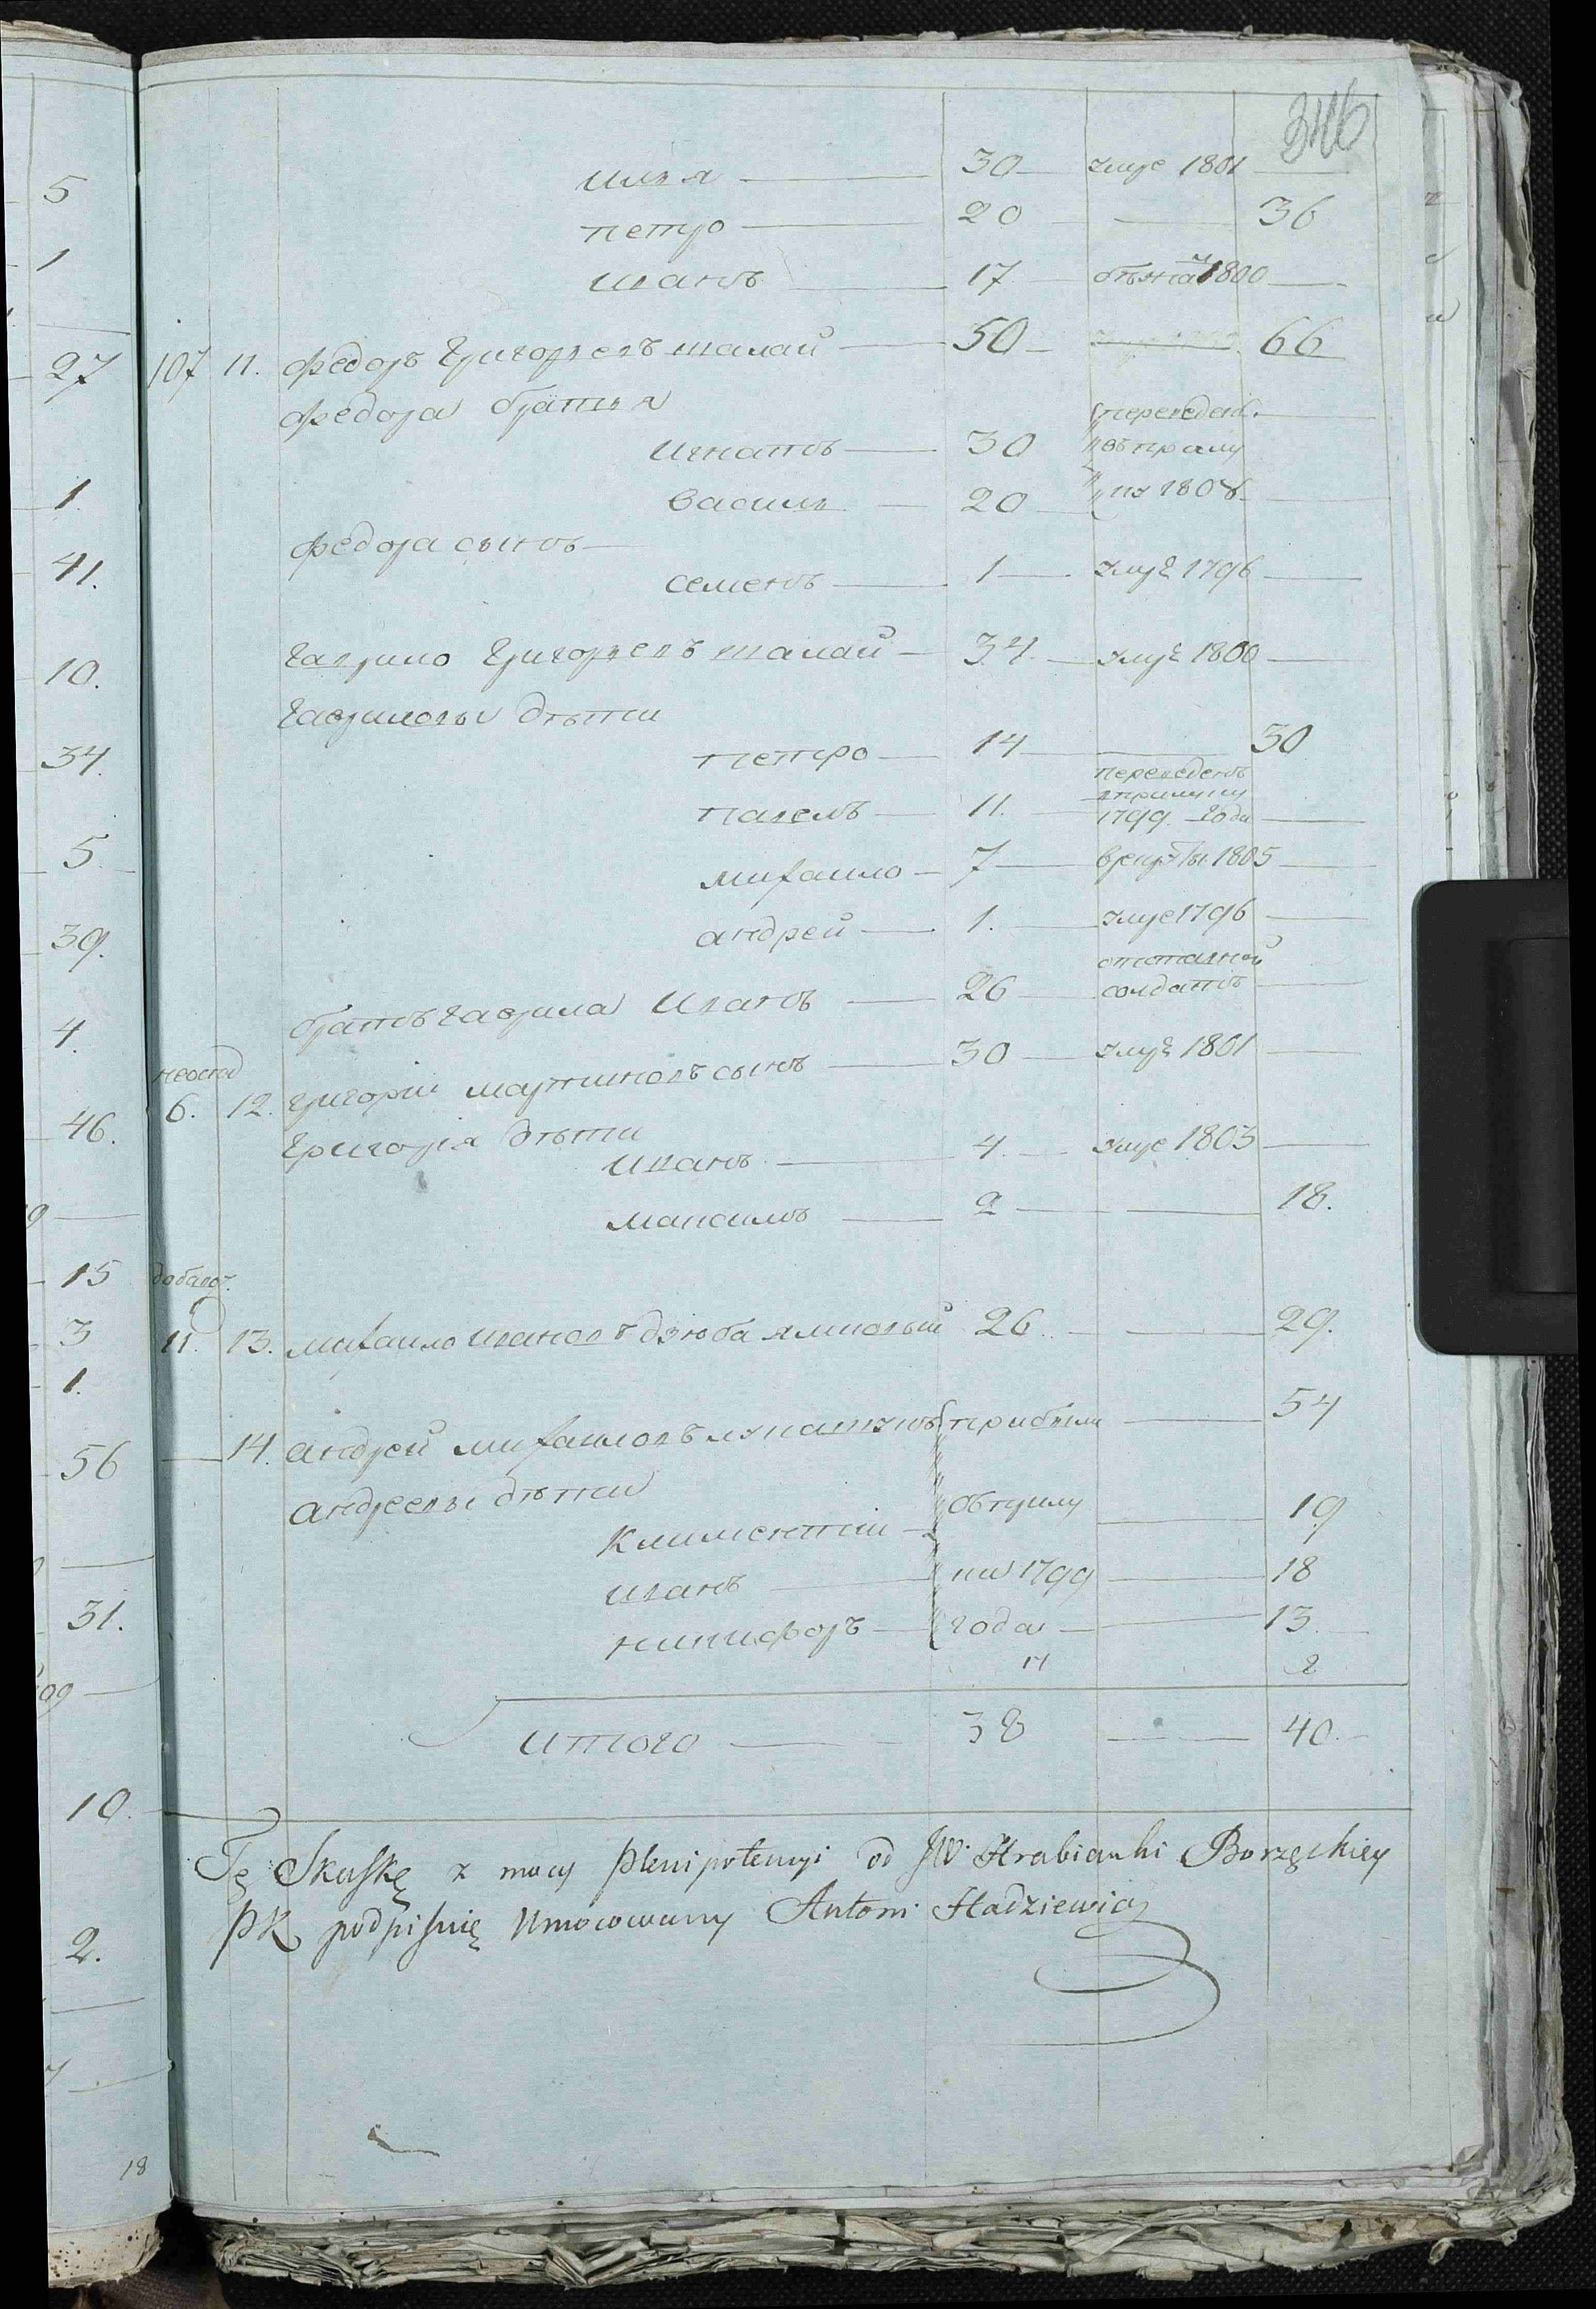 346
илья 30 умре 1801
петро 20 36
иванъ 17 бѣжа 1800
107 11. Федоръ Григорьевъ шалай 50 66
Федора братья
Игнатъ 30 переведен.
въ
Василь 20 1808
Федора сынъ
семенъ 1 умре 1796
Гаврило Григорьевъ шалай 34 умре 1800
Гавриловы дѣти
петро 14 30
павелъ 11. переведенъ
1799 года
михайло 7 1805
андрей 1. умре 1796
братъ Гаврила Иванъ 26 отставной солдатъ
6. 12. Григорій мартиновъ сынъ 30 умре 1801
Григорія дѣти
иванъ 4. умре 1803
максимъ 2 18.
добавоч.
11. 13. михайло ивановъ дзюба 26 29.
14. андрей михайловъ прибыли 54
андреевы дѣти
Климентій 19
иванъ 1799 18
никифоръ года 13
14 2
итого 38 40
Tę Skaskę z mocy plenipotencyi od JW. Hrabianki Borzęckiey
PK podpisuię Umocowany Antoni Hadziewicz
5
1
27
1.
41.
10.
34.
5
39.
4.
46.
15
3
1.
56
31.
10.
2.
18